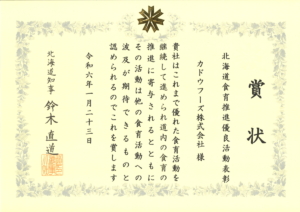 賞状
北海道食育推進優良活動表彰
カドウフーズ株式会社 様
貴社はこれまで優れた食育活動を
継続して進められ道内の食育の
推進に寄与されるとともに
その活動は他の食育活動への
波及が期待できるものと
認められるのでこれを賞します
令和六年一月二十三日
北海道知事 鈴木直道